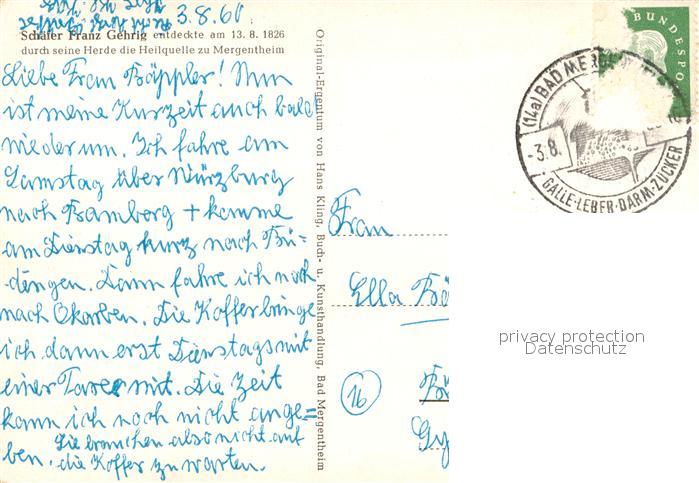 3.8.60
Schäfer Franz Gehrig entdeckte am 13. 8. 1826
durch seine Herde die Heilquelle zu Mergentheim
Liebe Frau Böppler! Nun
ist meine Kurzeit auch bald
wieder um. Ich fahre am
Samstag über Würzburg
nach Bamberg + komme
am Dienstag kurz nach Bü-
dingen. Dann fahre ich nach
nach Okarben. Die Koffer bringe
ich dann erst Dienstags mit
einer Taxe mit. Die Zeit
kann ich noch nicht ange=
ben. Sie brauchen also nicht auf
die Koffer zu warten.
Original-Eigentum von Hans Kling, Buch- u. Kunsthandlung, Bad Mergentheim
Frau
Ella Bö
16
BUNDESPO
(14a) BAD MERGEN
-3.8.
GALLE-LEBER-DARM-ZUCKER
privacy protection
Datenschutz